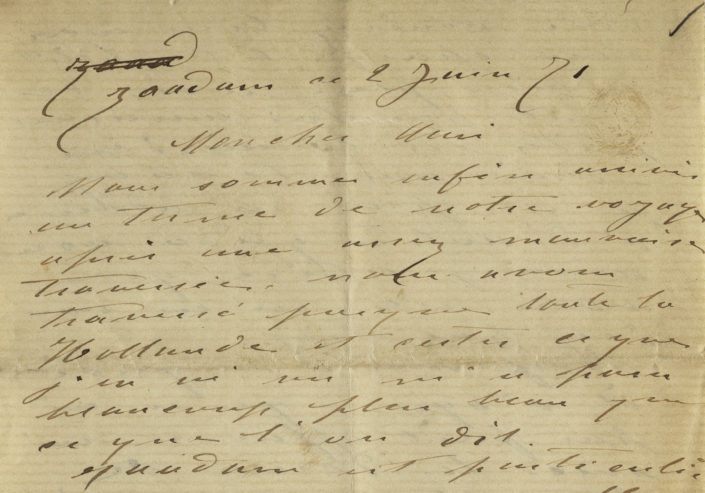 zaand
zaandam ce 2 Juin 71
Mon cher Ami
Nous sommes enfin arrivés
au terme de notre voyage
après une assez mauvaise
traversée. nous avons
traversé presque toute la
Hollande et certes ce que
j'en ai vu m'a paru
beaucoup plus beau que
ce que l'on dit.
zaandam est particuliè